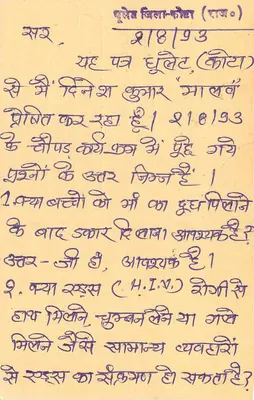 धूलेट जिला-कोटा (राज०)
सर, २/८/93
यह पत्र धूलेट, (कोटा)
से मैं दिनेश कुमार मालव
प्रेषित कर रहा हूँ। २/८/93
के चौपड़ कार्यक्रम में पूछे गये
प्रश्नों के उत्तर निम्न हैं।
1. क्या बच्चो को मां का दूध पिलाने
के बाद डकार दिलाना आवश्यक है?
उत्तर- जी हां, आवश्यक है।
२. क्या एड्स (H.I.V.) रोगी से
हाथ मिलने, चुम्बन लेने या गले
मिलने जैसे सामान्य व्यवहारों
से एड्स का संक्रमण हो सकता है?